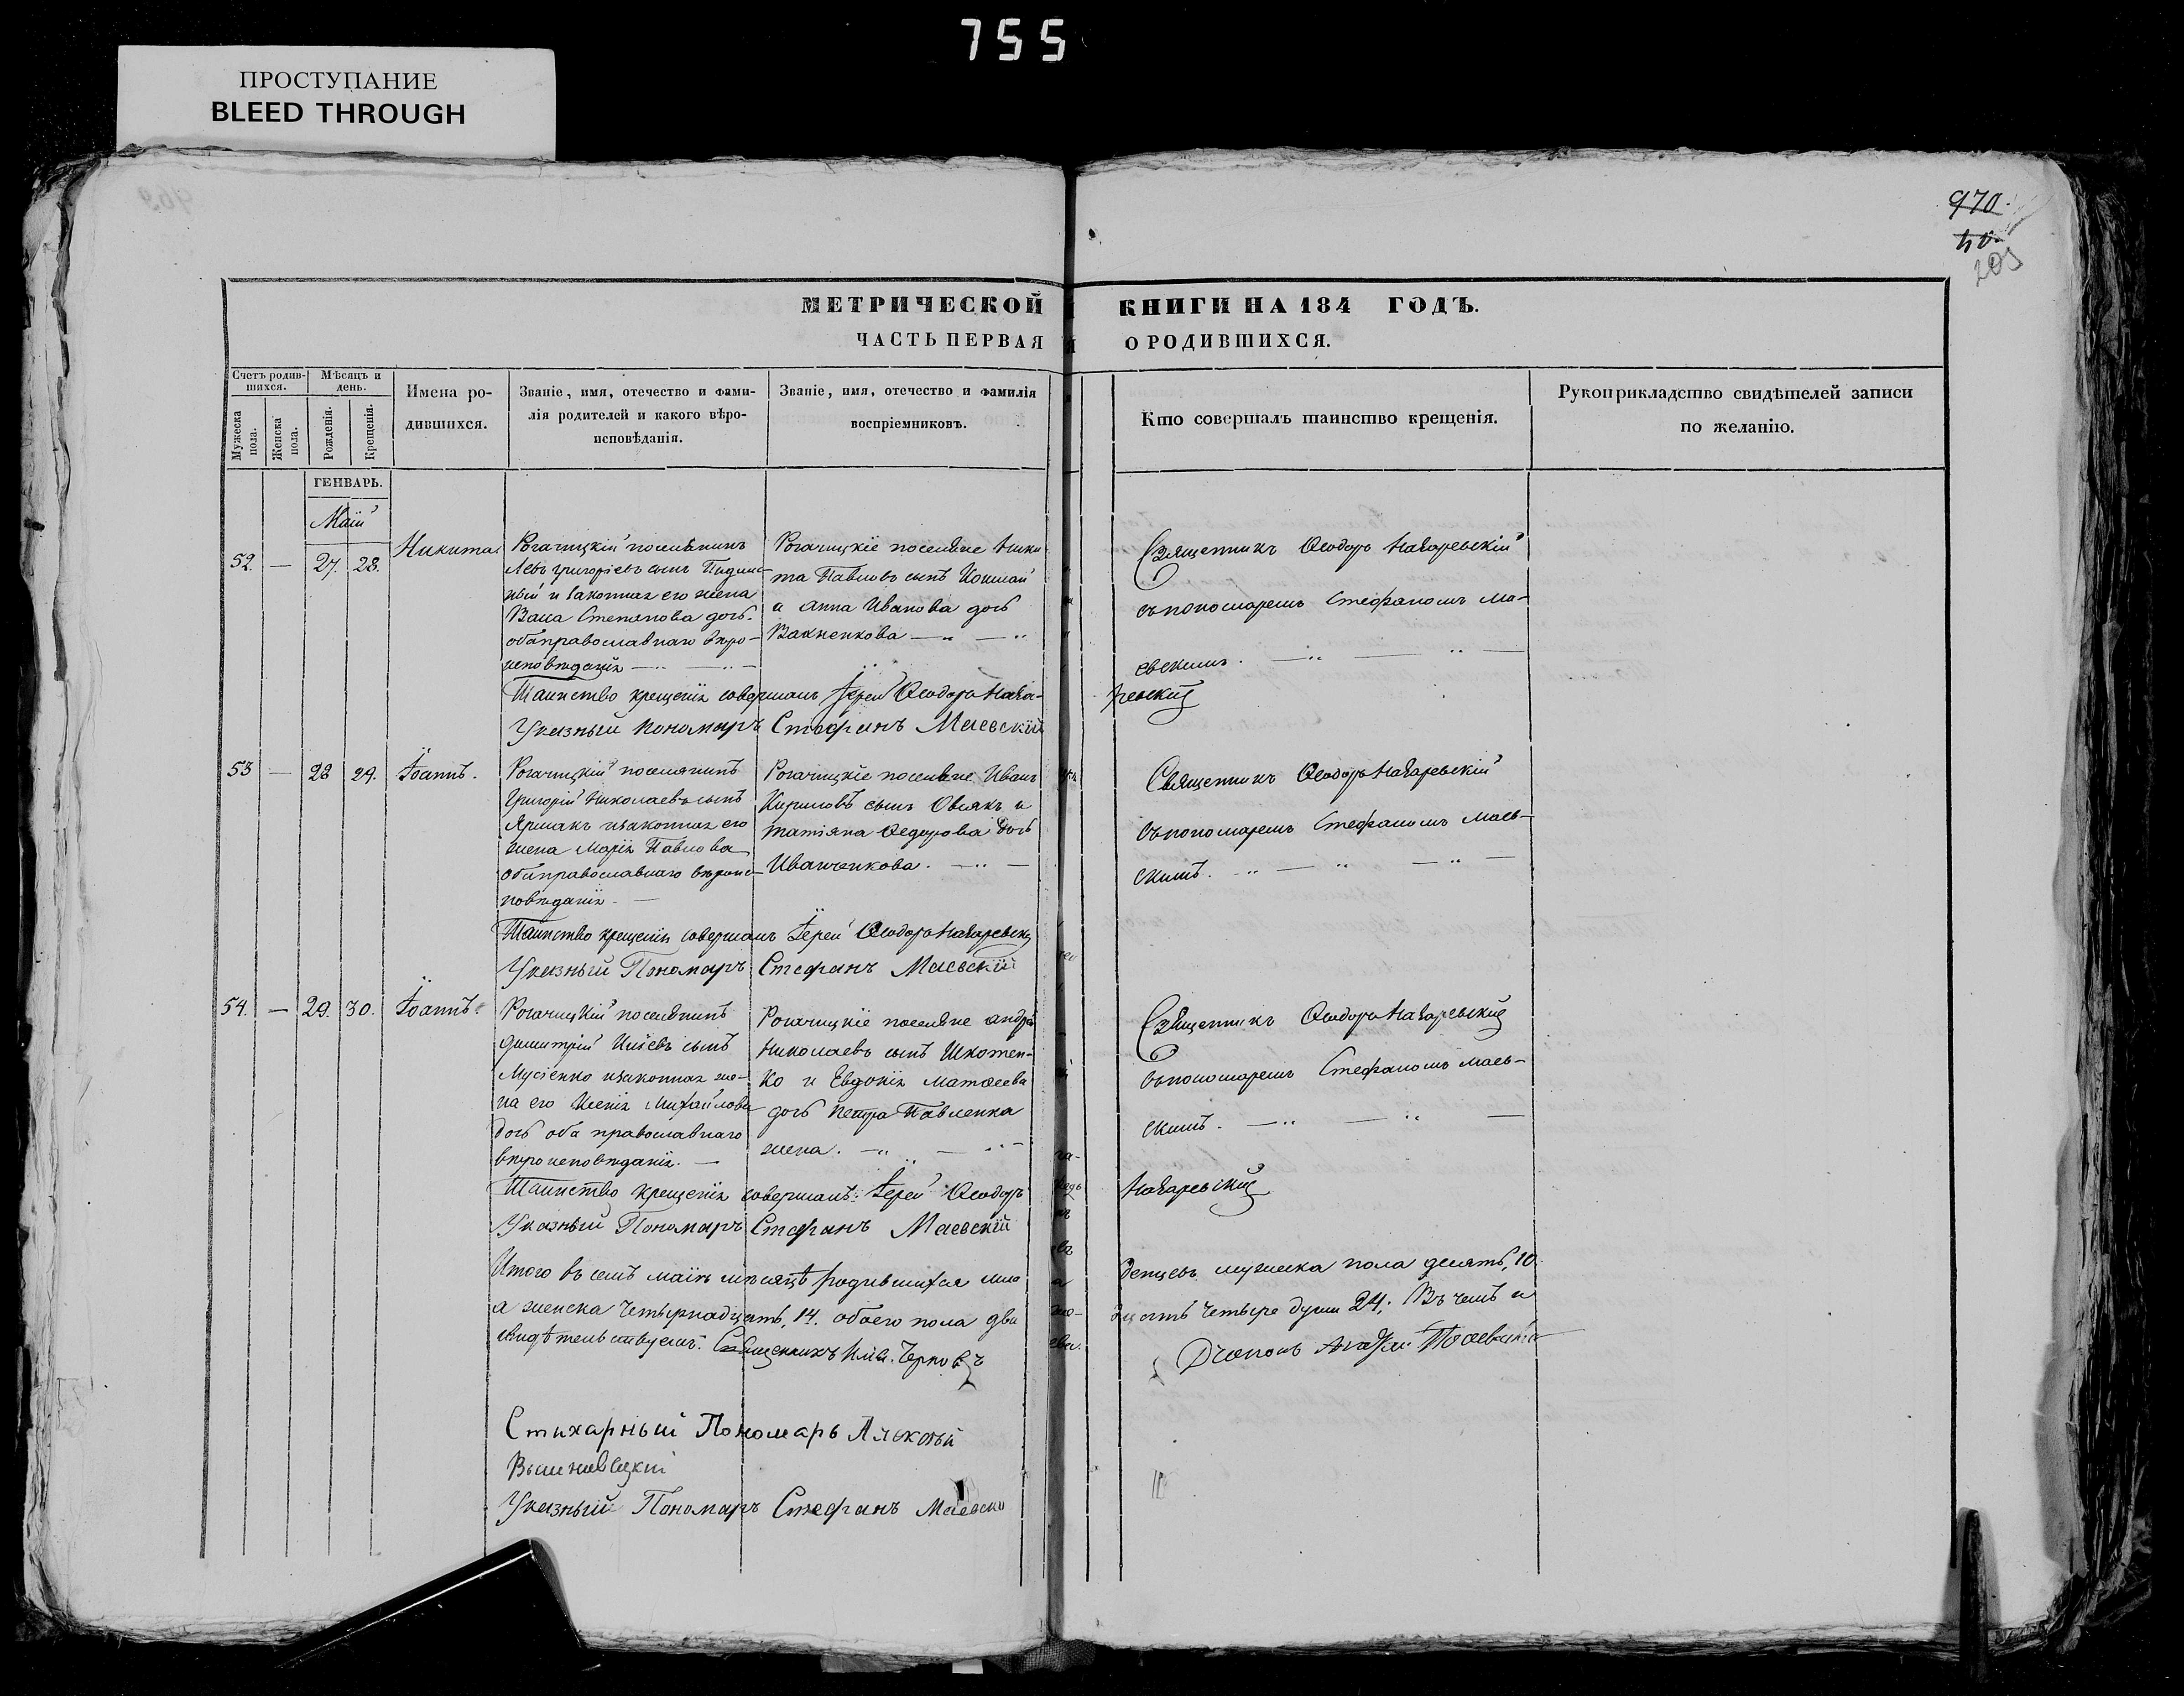 755
ПРОСТУПАНИЕ
BLEED THROUGH
970.
40.
205
МЕТРИЧЕСКОЙ КНИГИ НА 184 ГОДЪ.
ЧАСТЬ ПЕРВАЯ О РОДИВШИХСЯ.
Счетъ родив-
шихся.
Мужеска
пола.
Женска
пола.
Мѣсяцъ и
день.
Рожденія.
Крещенія.
Имена ро-
дившихся.
Званіе, имя, отечество и фами-
лія родителей и какого вѣро-
исповѣданія.
Званіе, имя, отечество и фамилія
воспріемниковъ.
Кто совершалъ таинство крещенія.
Рукоприкладство свидѣтелей записи
по желанію.
ГЕНВАРЬ.
Маій
52. — 27. 28. Никита
Рогачицкій поселянинъ
Левъ Григорієвъ сынъ
ный и законная его жена
Степанова дочь
оба православнаго вѣро-
исповѣданія
Рогачицкіе поселяне Ники
та Павловъ сынъ
и Анна Иванова дочь
Вакненкова
Священникъ Ѳеодоръ Назаревскій
съ пономаремъ Стефаномъ Ма-
евскимъ.
Таинство крещенія совершалъ Іерей Ѳеодоръ Наза-
ревскій
Указный Пономарь Стефанъ Маевскій
53 — 28 29. Іоаннъ.
Рогачицкій поселянинъ
Григорій Николаевъ сынъ
Ярмакъ и законная его
жена Марія Павлова
оба православнаго вѣроис-
повѣданія
Рогачицкіе поселяне Иванъ
Кириловъ сынъ Овсякъ и
Татіяна Ѳедорова дочь
Иванченкова.
Священникъ Ѳеодоръ Назаревскій
съ пономаремъ Стефаномъ Маев-
скимъ.
Таинство крещенія совершалъ Іерей Ѳеодоръ Назаревскій
Указный Пономарь Стефанъ Маевскій
54. — 29. 30. Іоаннъ.
Рогачицкій поселянинъ
Димитрій сынъ
Мусіенко и законная же-
на его Ксенія Михайлова
дочь оба православнаго
вѣроисповѣданія.
Рогачицкіе поселяне Андрей
Николаевъ сынъ Шкотен-
ко и Евдокія Матѳеева
дочь Петра Павленка
жена.
Священникъ Ѳеодоръ Назаревскій
съ пономаремъ Стефаномъ Маев-
скимъ.
Таинство крещенія совершалъ: Іерей Ѳеодоръ
Назаревскій
Указный Пономарь Стефанъ Маевскій
Итого въ семъ маіѣ мѣсяцѣ родившихся мла
денцевъ мужеска пола десять, 10.
а женска четырнадцать, 14. обоего пола два
дцать четыре души 24; Въ чемъ и
свидѣтельствуемъ. Священникъ
Діаконъ
Стихарный Пономарь Алексѣй
Вышневецкій
Указный Пономарь Стефанъ Маевскі